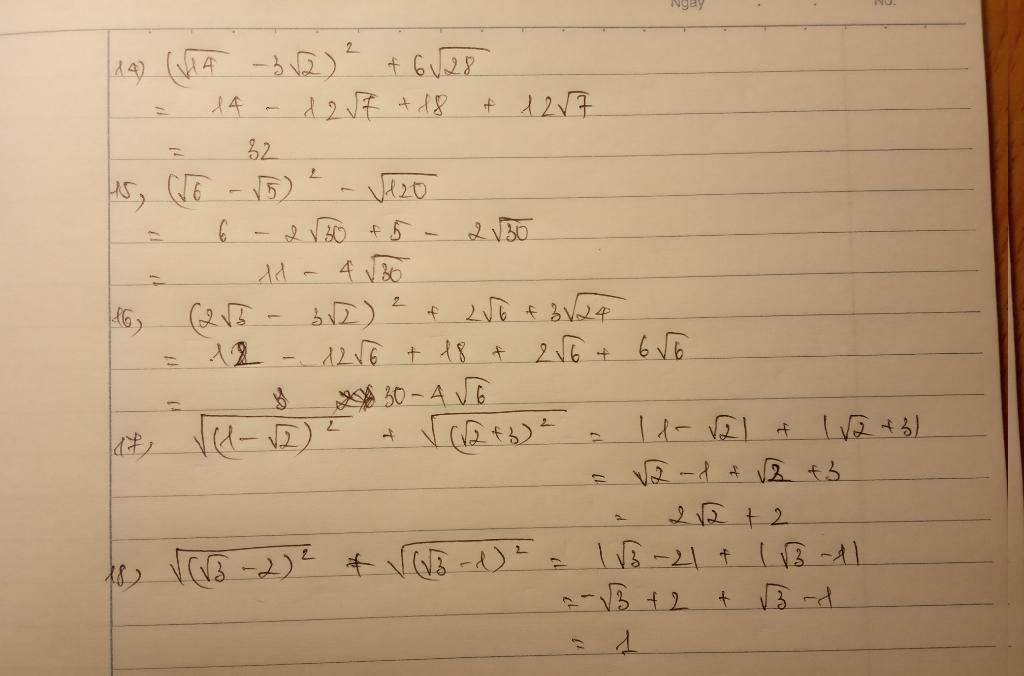 Ngày . . No.
14) (√14 - 3√2)² + 6√28
= 14 - 12√7 + 18 + 12√7
= 32
15, (√6 - √5)² - √120
= 6 - 2√30 + 5 - 2√30
= 11 - 4√30
16, (2√3 - 3√2)² + 2√6 + 3√24
= 12 - 12√6 + 18 + 2√6 + 6√6
= 30 - 4√6
17, √(1-√2)² + √(√2+3)² = |1-√2| + |√2+3|
= √2 - 1 + √2 + 3
= 2√2 + 2
18, √(√3-2)² + √(√3-1)² = |√3-2| + |√3-1|
= -√3 + 2 + √3 - 1
= 1